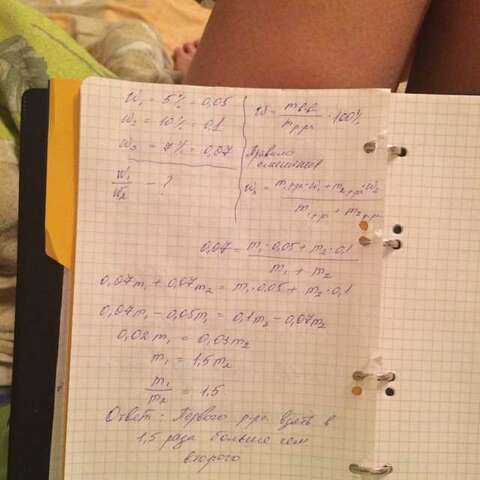 W₁ = 5% = 0,05
W₂ = 10% = 0,1
W₃ = 7% = 0,07
W₁/W₂ - ?
W = m в.в / m р.ра · 100%
Правило смешения
W₃ = m₁ р.ра · W₁ + m₂ р.ра · W₂ / m₁ р.ра + m₂ р.ра
0,07 = m₁ · 0,05 + m₂ · 0,1 / m₁ + m₂
0,07m₁ + 0,07m₂ = m₁ · 0,05 + m₂ · 0,1
0,07m₁ - 0,05m₁ = 0,1m₂ - 0,07m₂
0,02m₁ = 0,03m₂
m₁ = 1,5m₂
m₁/m₂ = 1,5
Ответ: Первого р-ра взять в
1,5 раза больше чем
второго